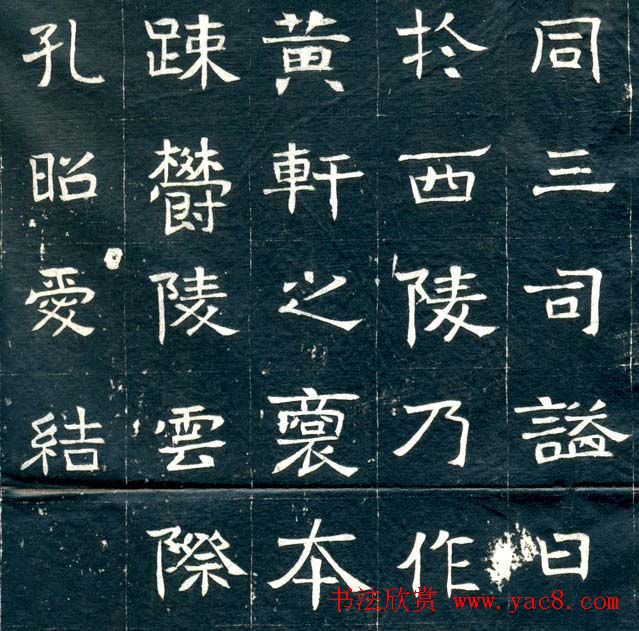 同三司謚曰
扵西陵乃作
黄軒之裔本
踈鬱陵雲際
孔昭愛結
书法欣赏 www.yac8.com